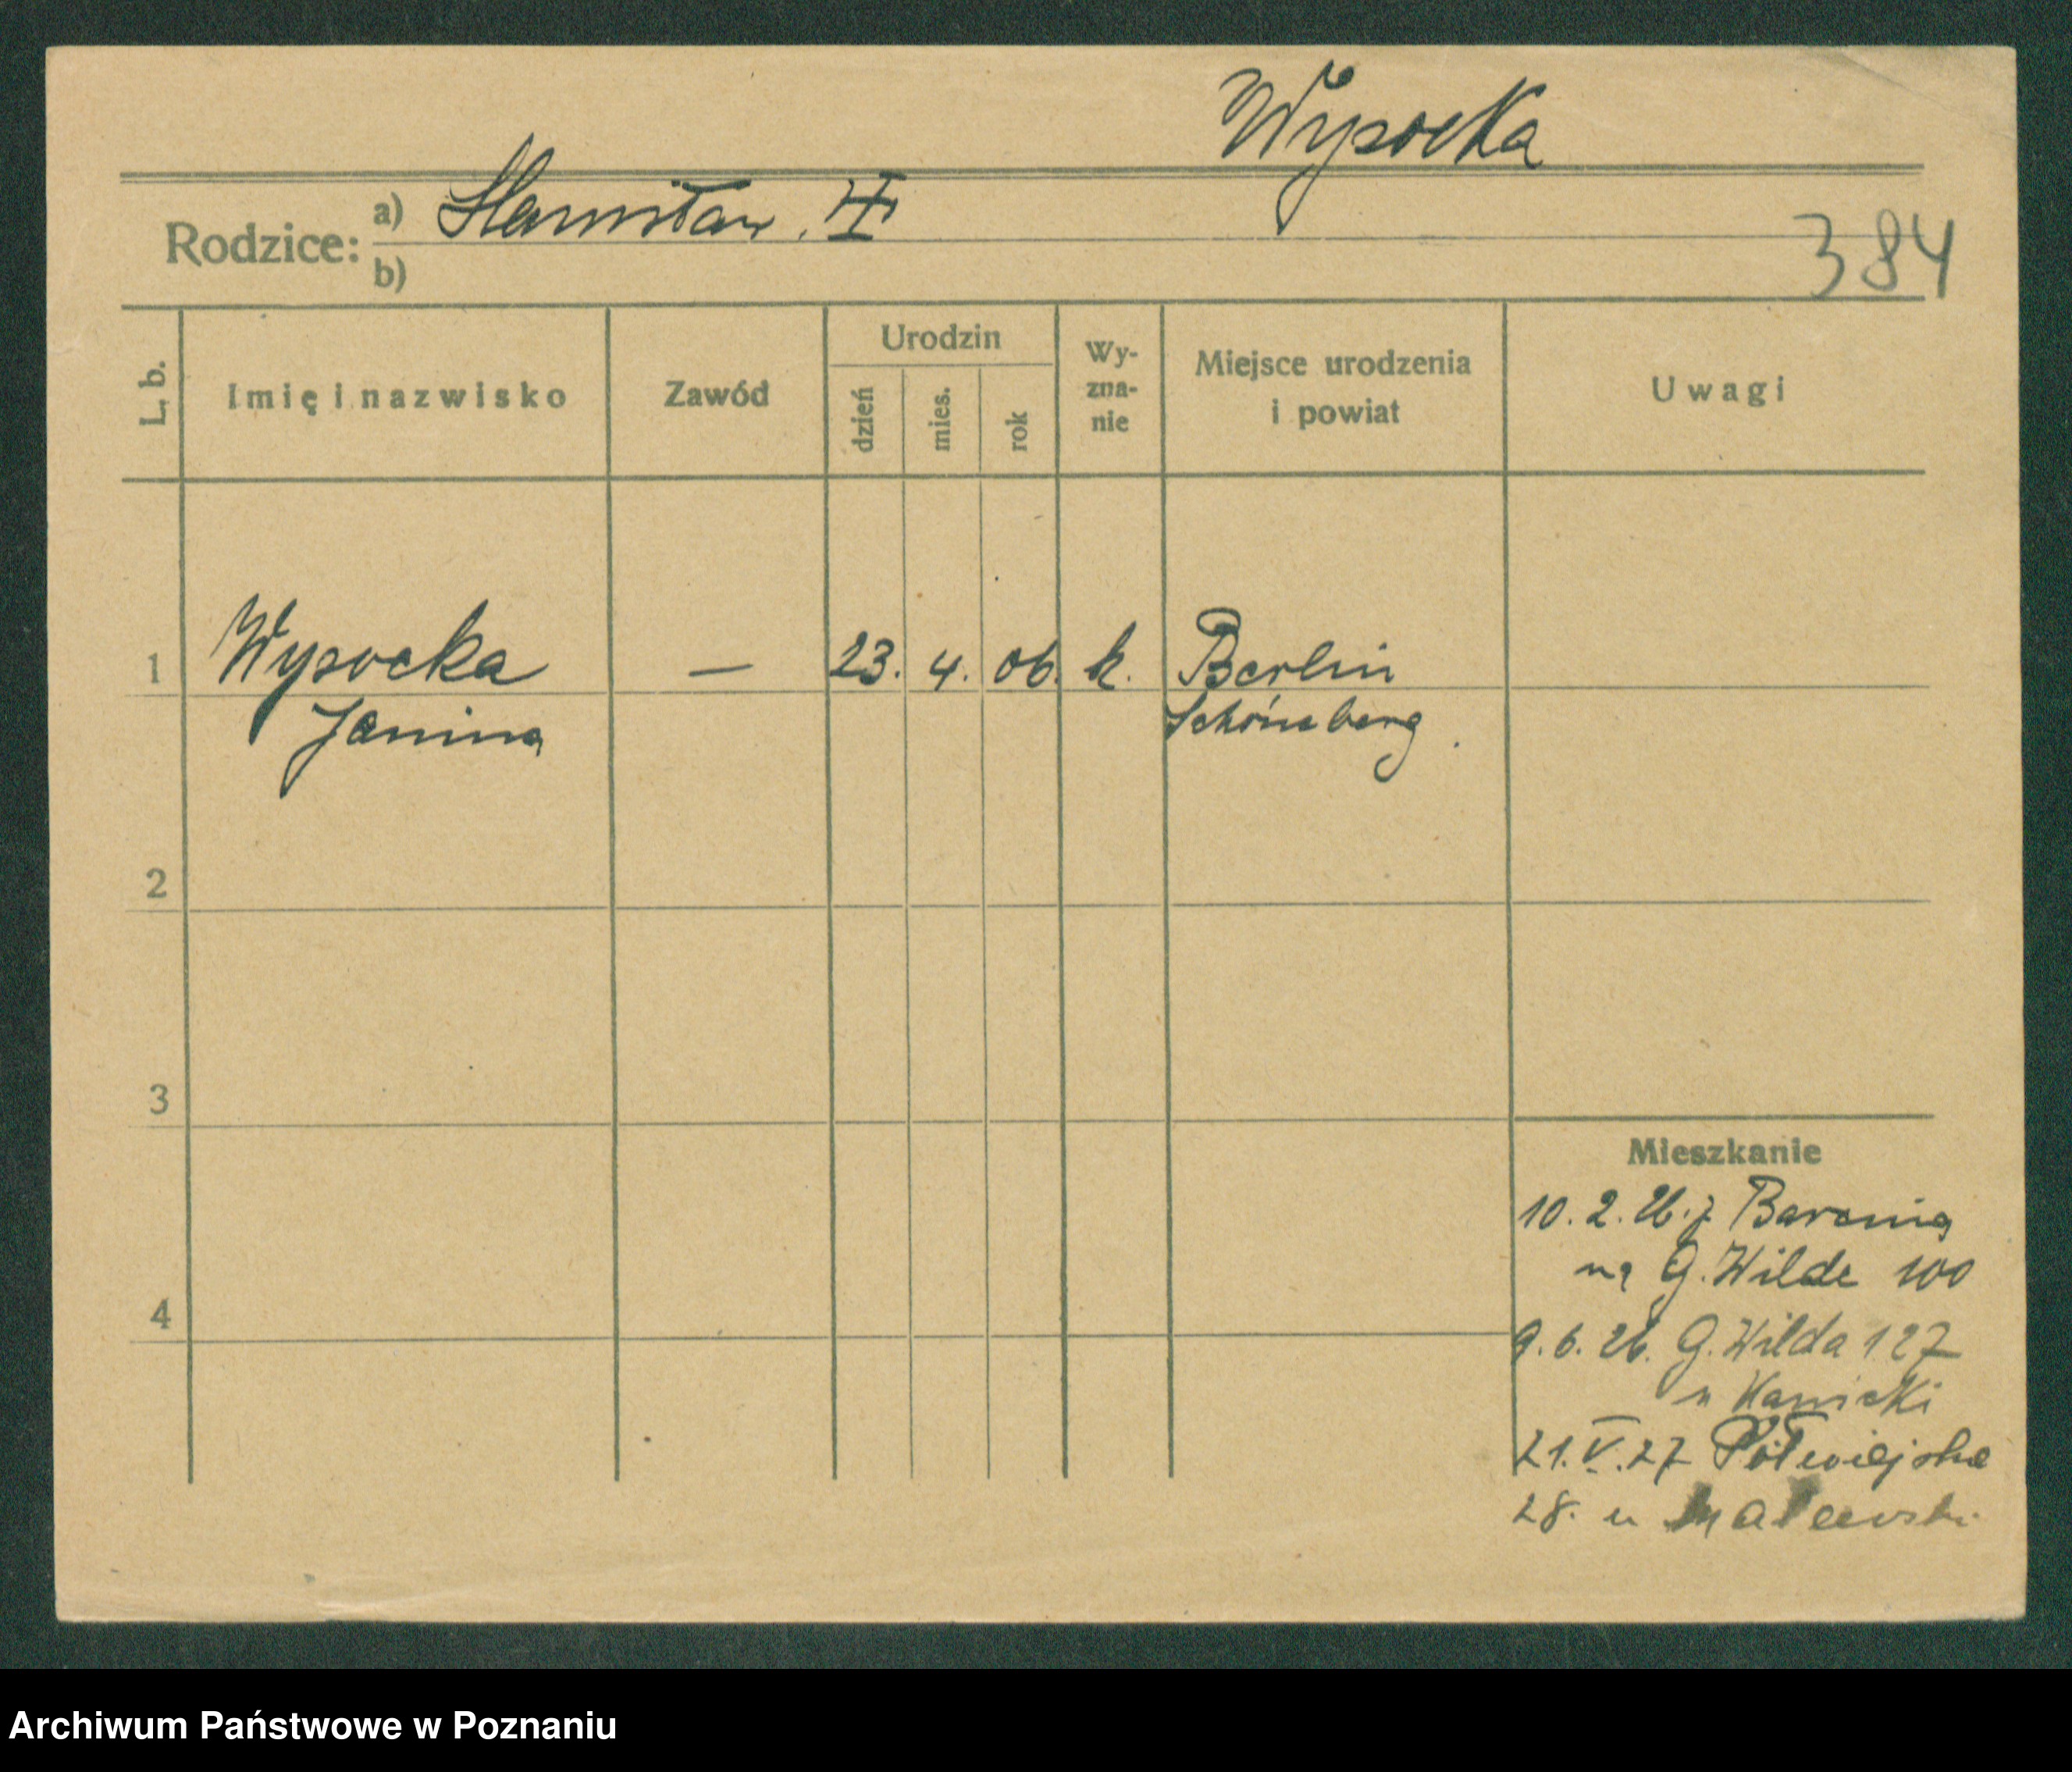 Wysocka
Rodzice: a) Stanisław. II
b)
384
L. b.
Imię i nazwisko
Zawód
Urodzin
dzień
mies.
rok
Wy-
zna-
nie
Miejsce urodzenia
i powiat
Uwagi
1 Wysocka — 23. 4. 06. k. Berlin
Janina Schöneberg.
2
3
4
Mieszkanie
10. 2. 26. z Barania
na G. Wilde 100
9. 6. 26. G. Wilda 127
u
21. V. 27 Półwiejska
28. u
Archiwum Państwowe w Poznaniu